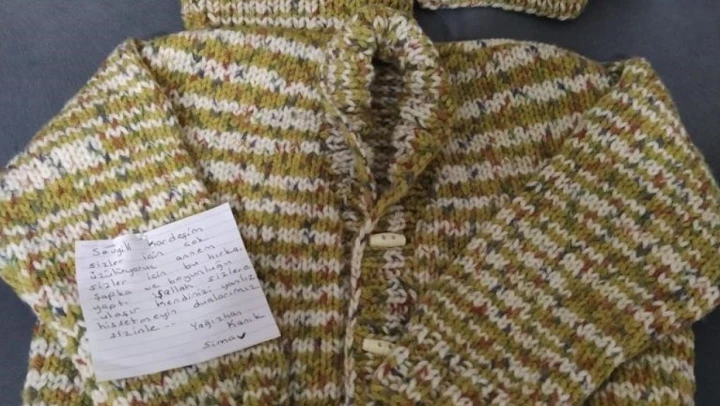 Sevgili Kardeşim
sizler için çok
üzülüyoruz annem
sizler için bu hırka,
şapka ve boyunluğu
yaptı. İşallah sizlere
ulaşır kendinizi yanlız
hissetmeyin dualarımız
sizinle -- Yağızhan
Kanık
Simav